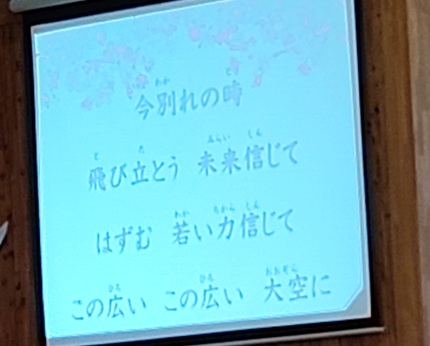 今別れの時
飛び立とう 未来信じて
はずむ 若い力信じて
この広い この広い 大空に